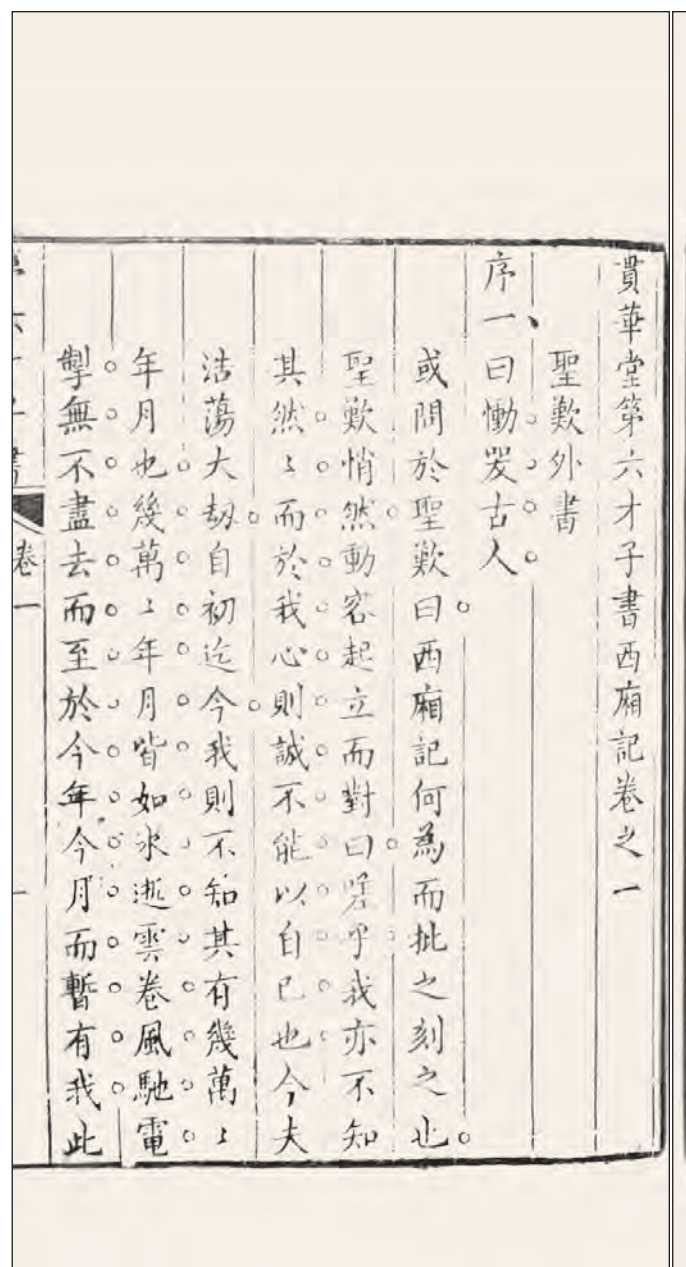 貫華堂第六才子書西廂記卷之一
聖歎外書
序一曰慟哭古人
或問於聖歎曰西廂記何為而批之刻之也
聖歎悄然動容起立而對曰嗟乎我亦不知
其然〻而於我心則誠不能以自已也今夫
浩蕩大劫自初迄今我則不知其有幾萬〻
年月也幾萬〻年月皆如水逝雲卷風馳電
掣無不盡去而至於今年今月而暫有我此
卷一
一